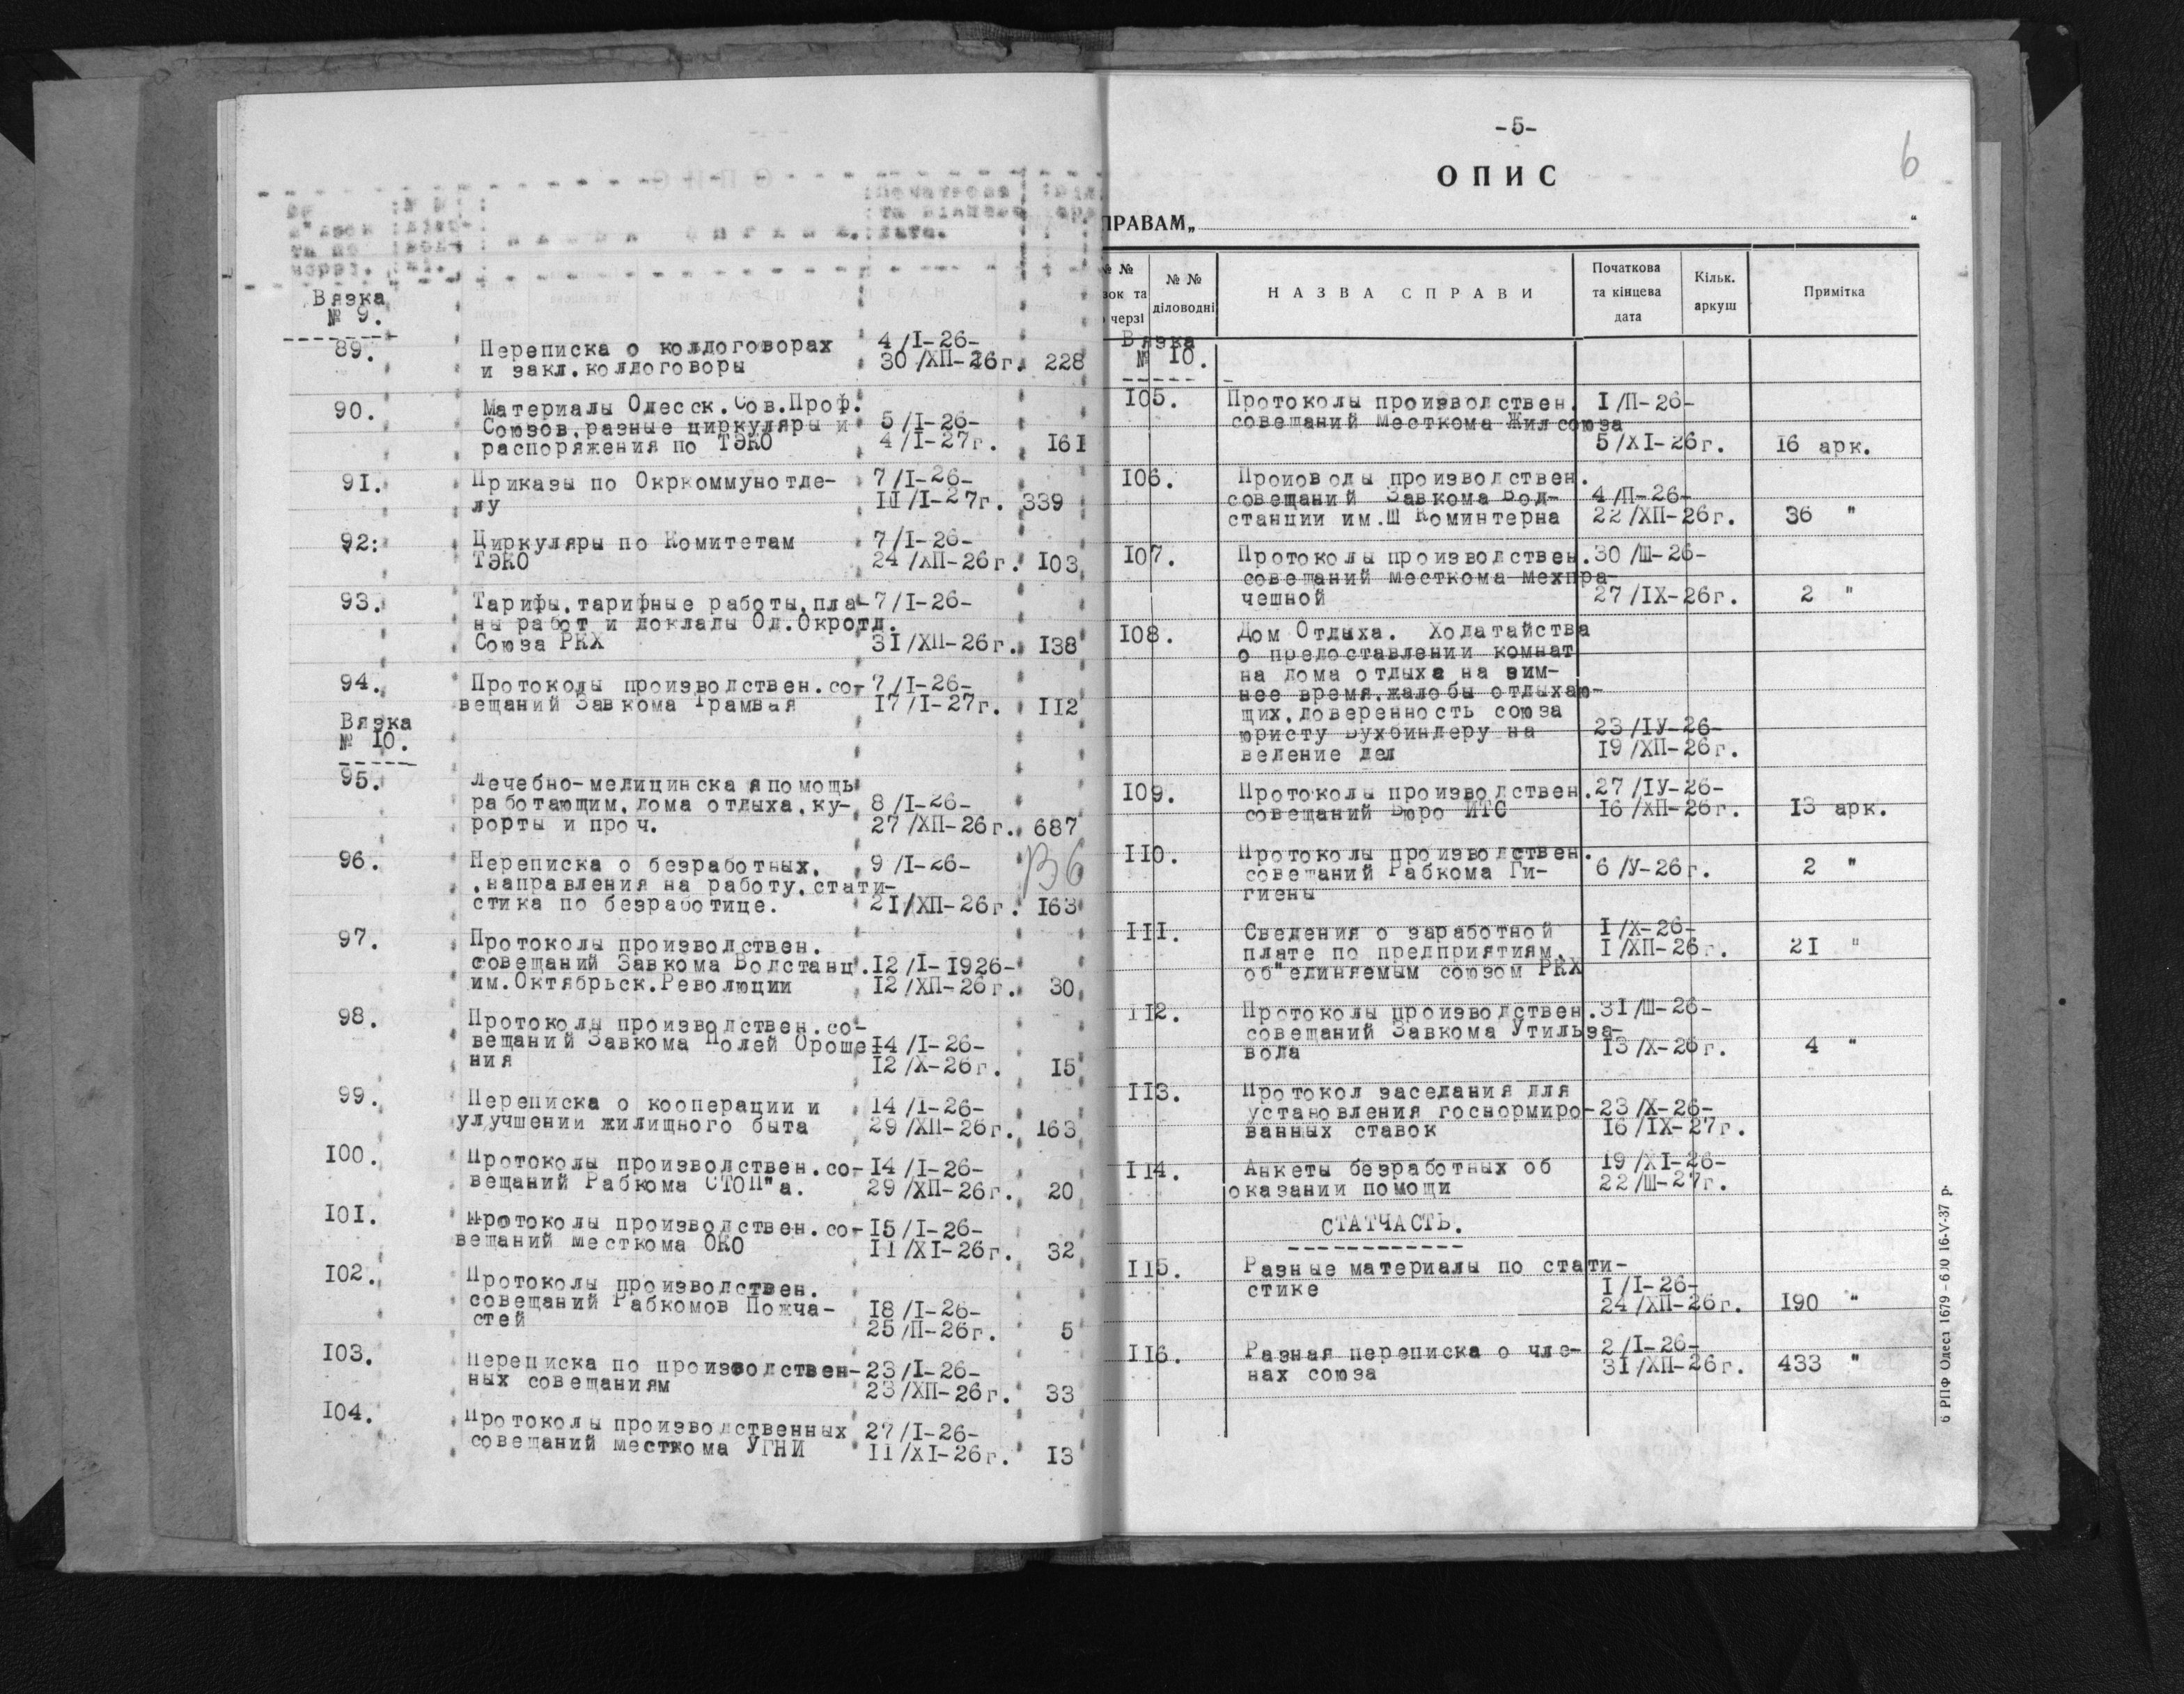 Початкова
та кінцева
дата.
Вязка
№ 9.
89. Переписка о колдоговорах 4/I-26-
и закл.колдоговоры 30/XП-26г. 228
90. Материалы Одесск.Сов.Проф.
Союзов,разные циркуляры и 5/I-26-
распоряжения по ТЭКО 4/I-27г. 161
91. Приказы по Окркоммунотде- 7/I-26-
лу 11/I-27г. 339
92. Циркуляры по Комитетам 7/I-26-
ТЭКО 24/XП-26г. 103
93. Тарифы,тарифные работы,пла- 7/I-26-
ны работ и доклады Од.Окротд.
Союза РКХ 31/XП-26г. 138
94. Протоколы производствен.со- 7/I-26-
вещаний Завкома Трамвая 17/I-27г. 112
Вязка
№ 10.
95. Лечебно-медицинская помощь
работающим,дома отдыха,ку- 8/I-26-
рорты и проч. 27/XП-26г. 687
96. Переписка о безработных, 9/I-26-
,направления на работу,стати-
стика по безработице. 21/XП-26г. 163
В6
97. Протоколы производствен.
совещаний Завкома Водстанц. 12/I-1926-
им.Октябрьск.Революции 12/XП-26г. 30
98. Протоколы производствен.со-
вещаний Завкома Полей Ороше- 14/I-26-
ния 12/X-26г. 15
99. Переписка о кооперации и 14/I-26-
улучшении жилищного быта 29/XП-26г. 163
100. Протоколы производствен.со- 14/I-26-
вещаний Рабкома СТОП"а. 29/XП-26г. 20
101. Протоколы производствен.со- 15/I-26-
вещаний месткома ОКО 11/XI-26г. 32
102. Протоколы производствен.
совещаний Рабкомов Пожча- 18/I-26-
стей 25/П-26г. 5
103. Переписка по производствен- 23/I-26-
ных совещаниям 23/XП-26г. 33
104. Протоколы производственных 27/I-26-
совещаний месткома УГНИ 11/XI-26г. 13
-5-
6
ОПИС
ПРАВАМ„ “
№ № зок та черзі
№ № діловодні
НАЗВА СПРАВИ
Початкова та кінцева дата
Кільк. аркуш
Примітка
Вязка
№ 10.
105. Протоколы производствен. 1/П-26-
совещаний месткома Жилсоюза
5/XI-26г. 16 арк.
106. Проиоводы производствен.
совещаний Завкома Вод- 4/П-26-
станции им.Ш Коминтерна 22/XП-26г. 36 "
107. Протоколы производствен. 30/Ш-26-
совещаний месткома мехпра-
чешной 27/IX-26г. 2 "
108. Дом Отдыха. Ходатайства
о предоставлении комнат
на дома отдыха на зим-
нее время,жалобы отдыхаю-
щих,доверенность союза
юристу Бухбиндеру на 23/IУ-26-
ведение дел 19/XП-26г.
109. Протоколы производствен. 27/IУ-26-
совещаний Бюро ИТС 16/XП-26г. 13 арк.
110. Протоколы производствен.
совещаний Рабкома Ги- 6/У-26г. 2 "
гиены
111. Сведения о заработной 1/X-26-
плате по предприятиям, 1/XП-26г. 21 "
об"единяемым союзом РКХ
112. Протоколы производствен. 31/Ш-26-
совещаний Завкома Утильза-
вода 13/X-26г. 4 "
113. Протокол заседания для
установления госнормиро- 23/X-26-
ванных ставок 16/IX-27г.
114. Анкеты безработных об 19/XI-26-
оказании помощи 22/Ш-27г.
СТАТЧАСТЬ.
115. Разные материалы по стати-
стике 1/I-26-
24/XП-26г. 190 "
116. Разная переписка о чле- 2/I-26-
нах союза 31/XП-26г. 433 "
6 РПФ Одеса 1679 - 600 16-V-37 р.